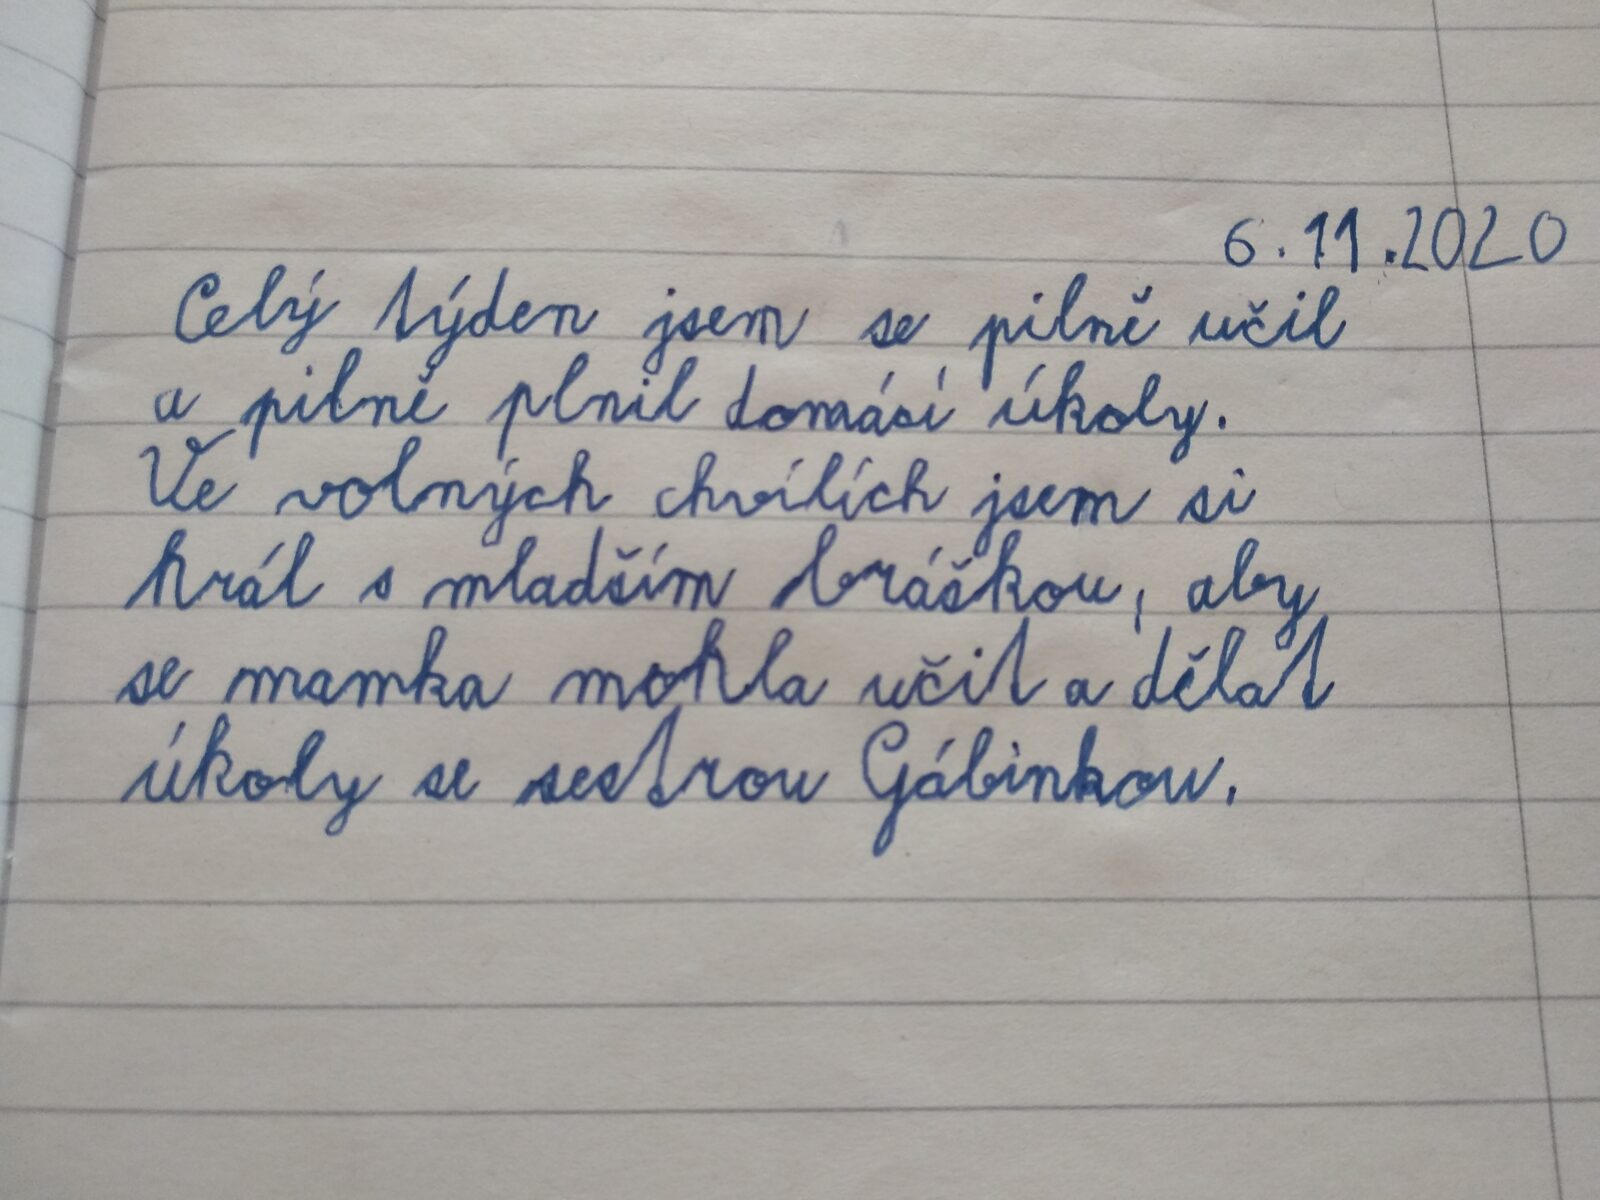 6.11.2020
Celý týden jsem se pilně učil
a pilně plnil domásí úkoly.
Ve volných chvílích jsem si
hrál s mladším bráškou, aby
se mamka mohla učit a dělat
úkoly se sestrou Gábinkou.